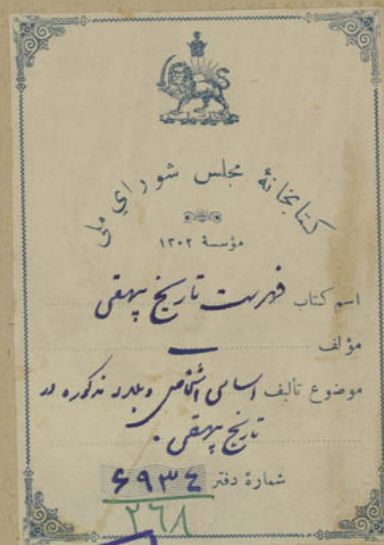 کتابخانهٔ مجلس شورای ملی
مؤسسهٔ ۱۳۰۲
اسم کتاب فهرست تاریخ بیهقی
مؤلف
موضوع تألیف اسامی اشخاص و بلاد مذکوره در
تاریخ بیهقی.
شمارهٔ دفتر ۶۹۳۴
۲۶۸